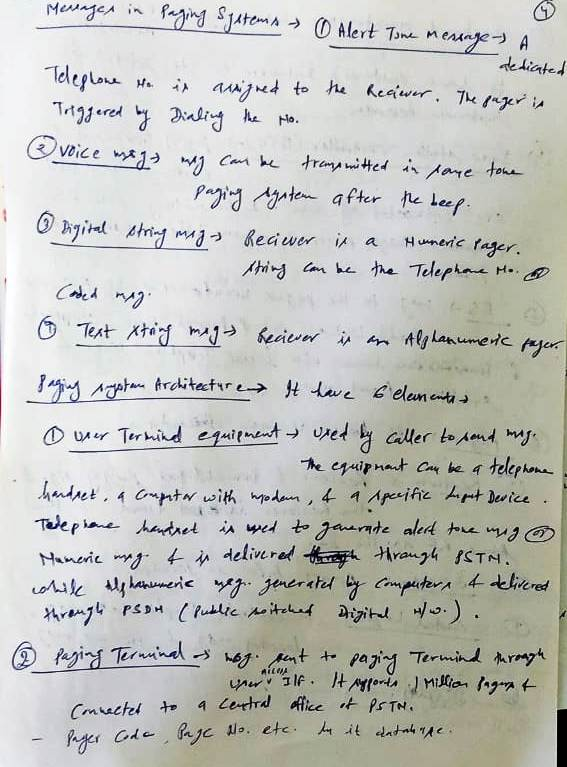 4
Messages in Paging Systems → ① Alert Tone Message → A
dedicated
Telephone No. is assigned to the Reciever. The pager is
Triggered by Dialing the No.
② Voice msg → msg can be transmitted in some tone
paging system after the beep.
③ Digital string msg → Reciever is a Numeric Pager.
string can be the Telephone No. or
Coded msg.
④ Text string msg → Reciever is an Alphanumeric pager.
Paging system Architecture → It have 6 elements →
① User Terminal equipment → used by caller to send msg.
The equipment can be a telephone
handset, a Computer with modem, & a specific Input Device.
Telephone handset is used to generate alert tone msg or
Numeric msg. & is delivered through PSTN.
while Alphanumeric msg. generated by Computers & delivered
through PSDN (Public switched Digital N/w.).
② Paging Terminal → msg. sent to paging Terminal through
user access I/F. It supports 1 Million Pagers &
Connected to a central office of PSTN.
- Pager Code, Page No. etc. in it database.